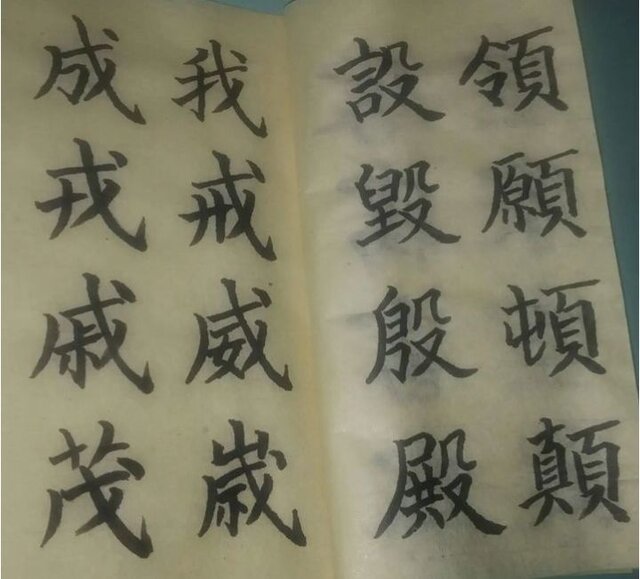 領願頓顛
設毀殷殿
我戒威歳
成戎戚茂